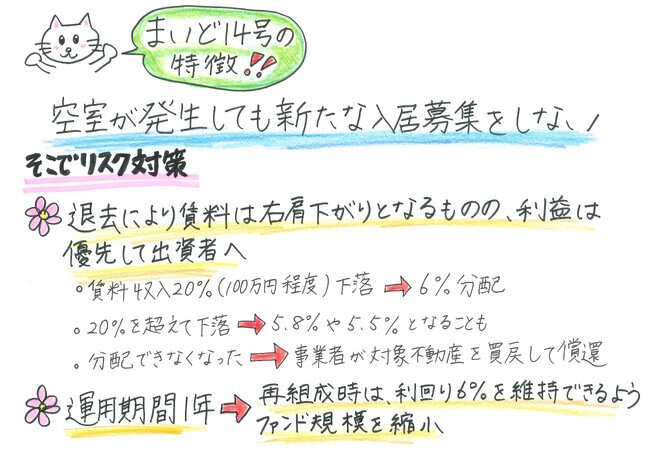 まいど14号の
特徴!!
空室が発生しても新たな入居募集をしない!
そこでリスク対策
退去により賃料は右肩下がりとなるものの、利益は
優先して出資者へ
○賃料収入20%(100万円程度)下落➡6%分配
○20%を超えて下落➡5.8%や5.5%となることも
○分配できなくなった➡事業者が対象不動産を買戻して償還
運用期間1年➡再組成時は、利回り6%を維持できるよう
ファンド規模を縮小